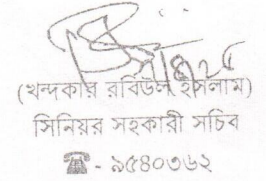 (খন্দকার রবিউল ইসলাম)
সিনিয়র সহকারী সচিব
☎ - ৯৫৪০৩৬২